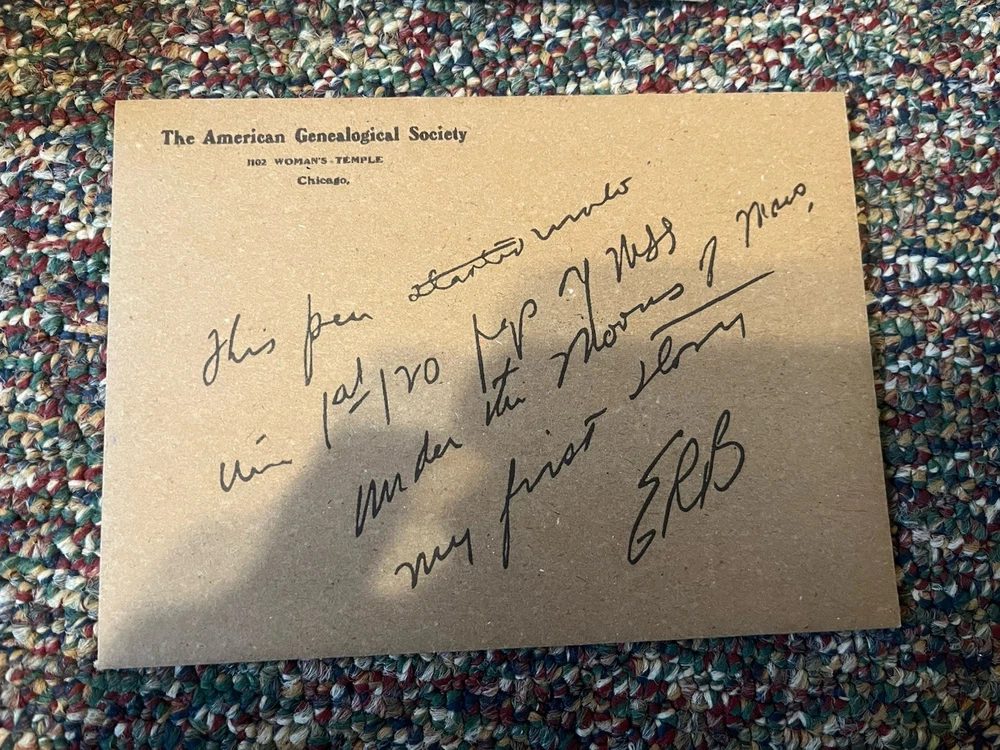 The American Genealogical Society
1102 WOMAN'S TEMPLE
Chicago.
This pen started wrote
1st 120 pgs of MSS
under the Moons of Mars,
my first story
ERB